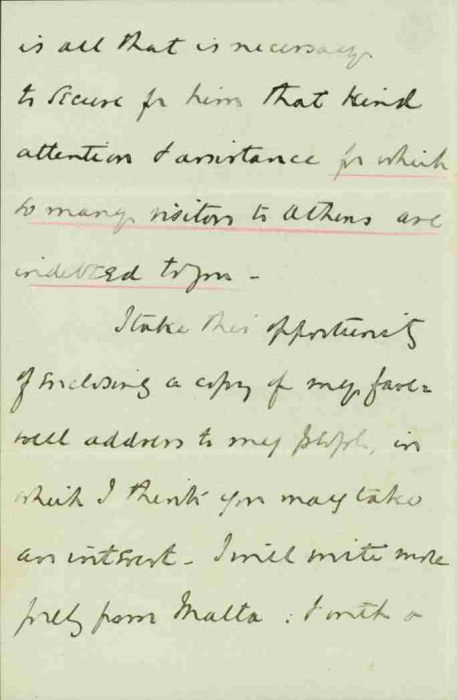 is all that is necessary
to secure for him that kind
attention & assistance for which
so many visitors to Athens are
indebted to you -
I take this opportunity
of enclosing a copy of my fare=
well address to my people, in
which I think you may take
an interest - I will write more
fully from Malta : & with a